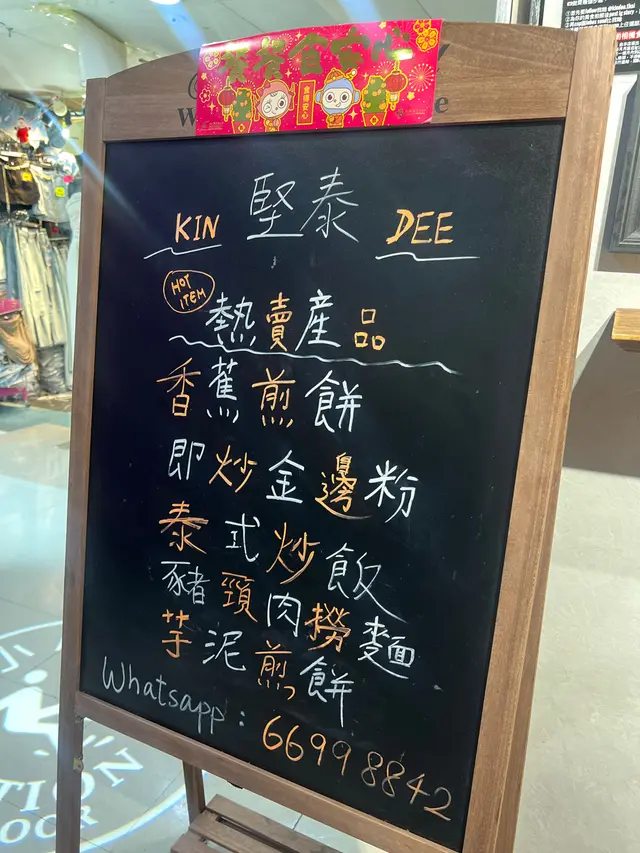 餐餐食安心
KIN 堅泰 DEE
HOT ITEM
熱賣産品
香蕉煎餅
即炒金邊粉
泰式炒飯
豬頸肉撈麵
芋泥煎餅
Whatsapp: 66998842
TION
OOR